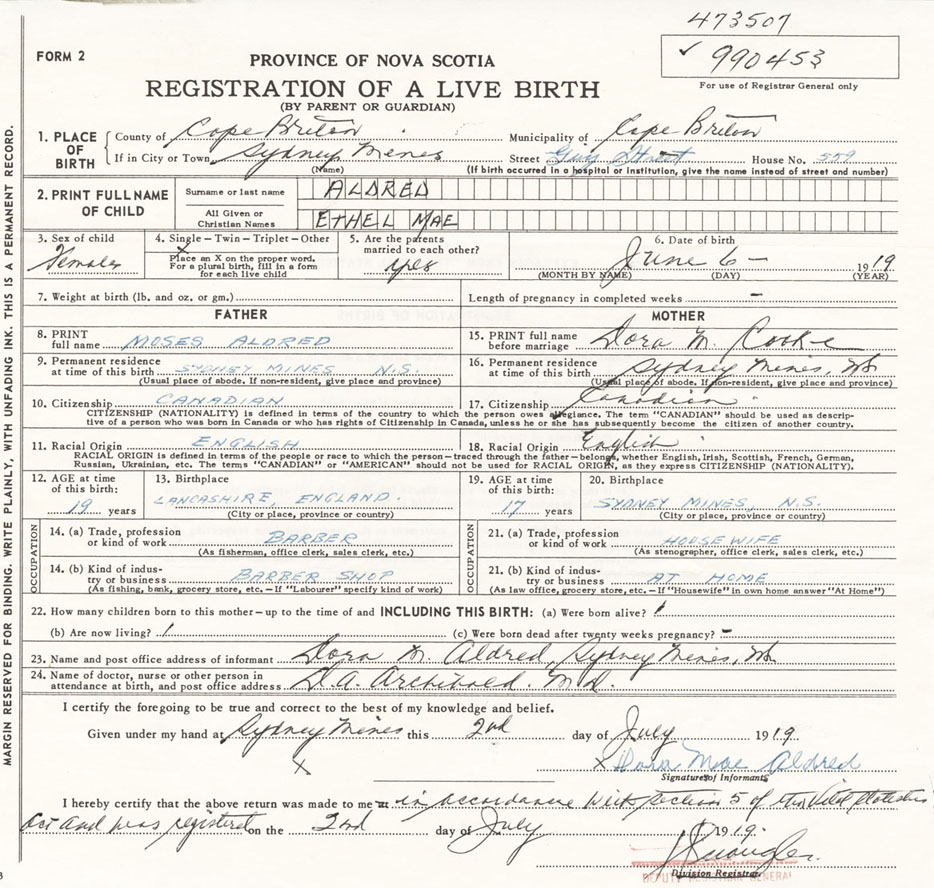 473507
✓ 990453
For use of Registrar General only
FORM 2
PROVINCE OF NOVA SCOTIA
REGISTRATION OF A LIVE BIRTH
(BY PARENT OR GUARDIAN)
MARGIN RESERVED FOR BINDING. WRITE PLAINLY, WITH UNFADING INK. THIS IS A PERMANENT RECORD.
1. PLACE OF BIRTH { County of Cape Breton Municipality of Cape Breton
If in City or Town Sydney Mines Street Guy Street House No. 559
(Name) (If birth occurred in a hospital or institution, give the name instead of street and number)
2. PRINT FULL NAME OF CHILD Surname or last name ALDRED
All Given or Christian Names ETHEL MAE
3. Sex of child Female
4. Single – Twin – Triplet – Other X
Place an X on the proper word. For a plural birth, fill in a form for each live child
5. Are the parents married to each other? yes
6. Date of birth June 6 – 19 19.
(MONTH BY NAME) (DAY) (YEAR)
7. Weight at birth (lb. and oz. or gm.) Length of pregnancy in completed weeks –
FATHER MOTHER
8. PRINT full name MOSES ALDRED
15. PRINT full name before marriage Dora M. Cooke
9. Permanent residence at time of this birth SYDNEY MINES N.S.
(Usual place of abode. If non-resident, give place and province)
16. Permanent residence at time of this birth Sydney Mines, NS
(Usual place of abode. If non-resident, give place and province)
10. Citizenship CANADIAN 17. Citizenship Canadian
CITIZENSHIP (NATIONALITY) is defined in terms of the country to which the person owes allegiance. The term "CANADIAN" should be used as descrip-
tive of a person who was born in Canada or who has rights of Citizenship in Canada, unless he or she has subsequently become the citizen of another country.
11. Racial Origin ENGLISH 18. Racial Origin English
RACIAL ORIGIN is defined in terms of the people or race to which the person–traced through the father–belongs, whether English, Irish, Scottish, French, German,
Russian, Ukrainian, etc. The terms "CANADIAN" or "AMERICAN" should not be used for RACIAL ORIGIN, as they express CITIZENSHIP (NATIONALITY).
12. AGE at time of this birth: 19 years
13. Birthplace LANCASHIRE, ENGLAND.
(City or place, province or country)
19. AGE at time of this birth: 17 years
20. Birthplace SYDNEY MINES, N.S.
(City or place, province or country)
OCCUPATION
14. (a) Trade, profession or kind of work BARBER
(As fisherman, office clerk, sales clerk, etc.)
14. (b) Kind of indus- try or business BARBER SHOP
(As fishing, bank, grocery store, etc.–If "Labourer" specify kind of work)
OCCUPATION
21. (a) Trade, profession or kind of work HOUSEWIFE
(As stenographer, office clerk, sales clerk, etc.)
21. (b) Kind of indus- try or business AT HOME
(As law office, grocery store, etc.–If "Housewife" in own home answer "At Home")
22. How many children born to this mother–up to the time of and INCLUDING THIS BIRTH: (a) Were born alive? 1
(b) Are now living? 1 (c) Were born dead after twenty weeks pregnancy? –
23. Name and post office address of informant Dora M. Aldred, Sydney Mines, NS
24. Name of doctor, nurse or other person in attendance at birth, and post office address D.A. Archibald. M.D.
I certify the foregoing to be true and correct to the best of my knowledge and belief.
Given under my hand at Sydney Mines this 2nd day of July 19 19.
X X Dora Mae Aldred
Signature of Informant
I hereby certify that the above return was made to me at in accordance with section 5 of the Vital Statistics
Act and was registered on the 2nd day of July 19 19.
Division Registrar
DEPUTY REGISTRAR GENERAL